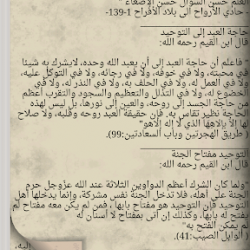 العلم حسن السؤال حسن الإصغاء "
- حادي الأرواح الى بلاد الأفراح 1-139
حاجة العبد إلى التوحيد
- قال ابن القيم رحمه الله:
" فاعلم أن حاجة العبد إلى أن يعبد الله وحده، لايشرك به شيئا
في محبته، ولا في خوفه، ولا في رجائه، ولا في التوكل عليه،
ولا في العمل له، ولا في الحلف به، ولا في النذر له، ولا في
الخضوع له، ولا في التذلل والتعظيم والسجود والتقرب أعظم
من حاجة الجسد إلى روحه، والعين إلى نورها، بل ليس لهذه
الحاجة نظير تقاس به. فإن حقيقة العبد روحه وقلبه، ولا صلاح
لها إلا بإلهها الذي لا إله إلا هو"
( طريق الهجرتين وباب السعادتين:99).
التوحيد مفتاح الجنة
- قال ابن القيم رحمه الله:
"ولما كان الشرك أعظم الدواوين الثلاثة عند الله عزوجل حرم
الجنة على أهله، فلا تدخل الجنة نفس مشركة، وإنما يدخلها أهل
التوحيد فإن التوحيد هو مفتاح بابها ، فمن لم يكن معه مفتاح لم
يفتح له بابها، وكذلك إن أتى بمفتاح لا أسنان له
لم يمكن الفتح به"
( الوابل الصيب:41).
إليه.